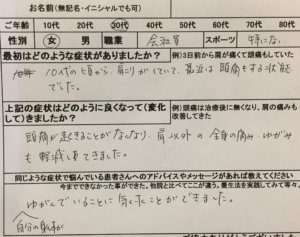 お名前(無記名・イニシャルでも可)
ご年齢 10代 20代 30代 40代 50代 60代 70代 80代
性別 女 男 職業 会社員 スポーツ 特になし
最初はどのような症状がありましたか? 例)3日前から肩が痛くて頭もしていた
10代の頃から、肩こりがしていて、最近は頭痛もする状態
でした。
上記の症状はどのように良くなって(変化して)きましたか? 例)頭痛は治療後に無くなり、肩の痛みも改善してきた
頭痛が起きることがなくなり、肩以外の全身の痛み、ゆがみ
も軽減してきました。
同じような症状で悩んでいる患者さんへのアドバイスやメッセージがあれば教えてください
今までできなかった事ができた。他院と比べてここが違う。養生法を実践してみて等々。
ゆがんでいることに気づくことができました。
自分の身体が